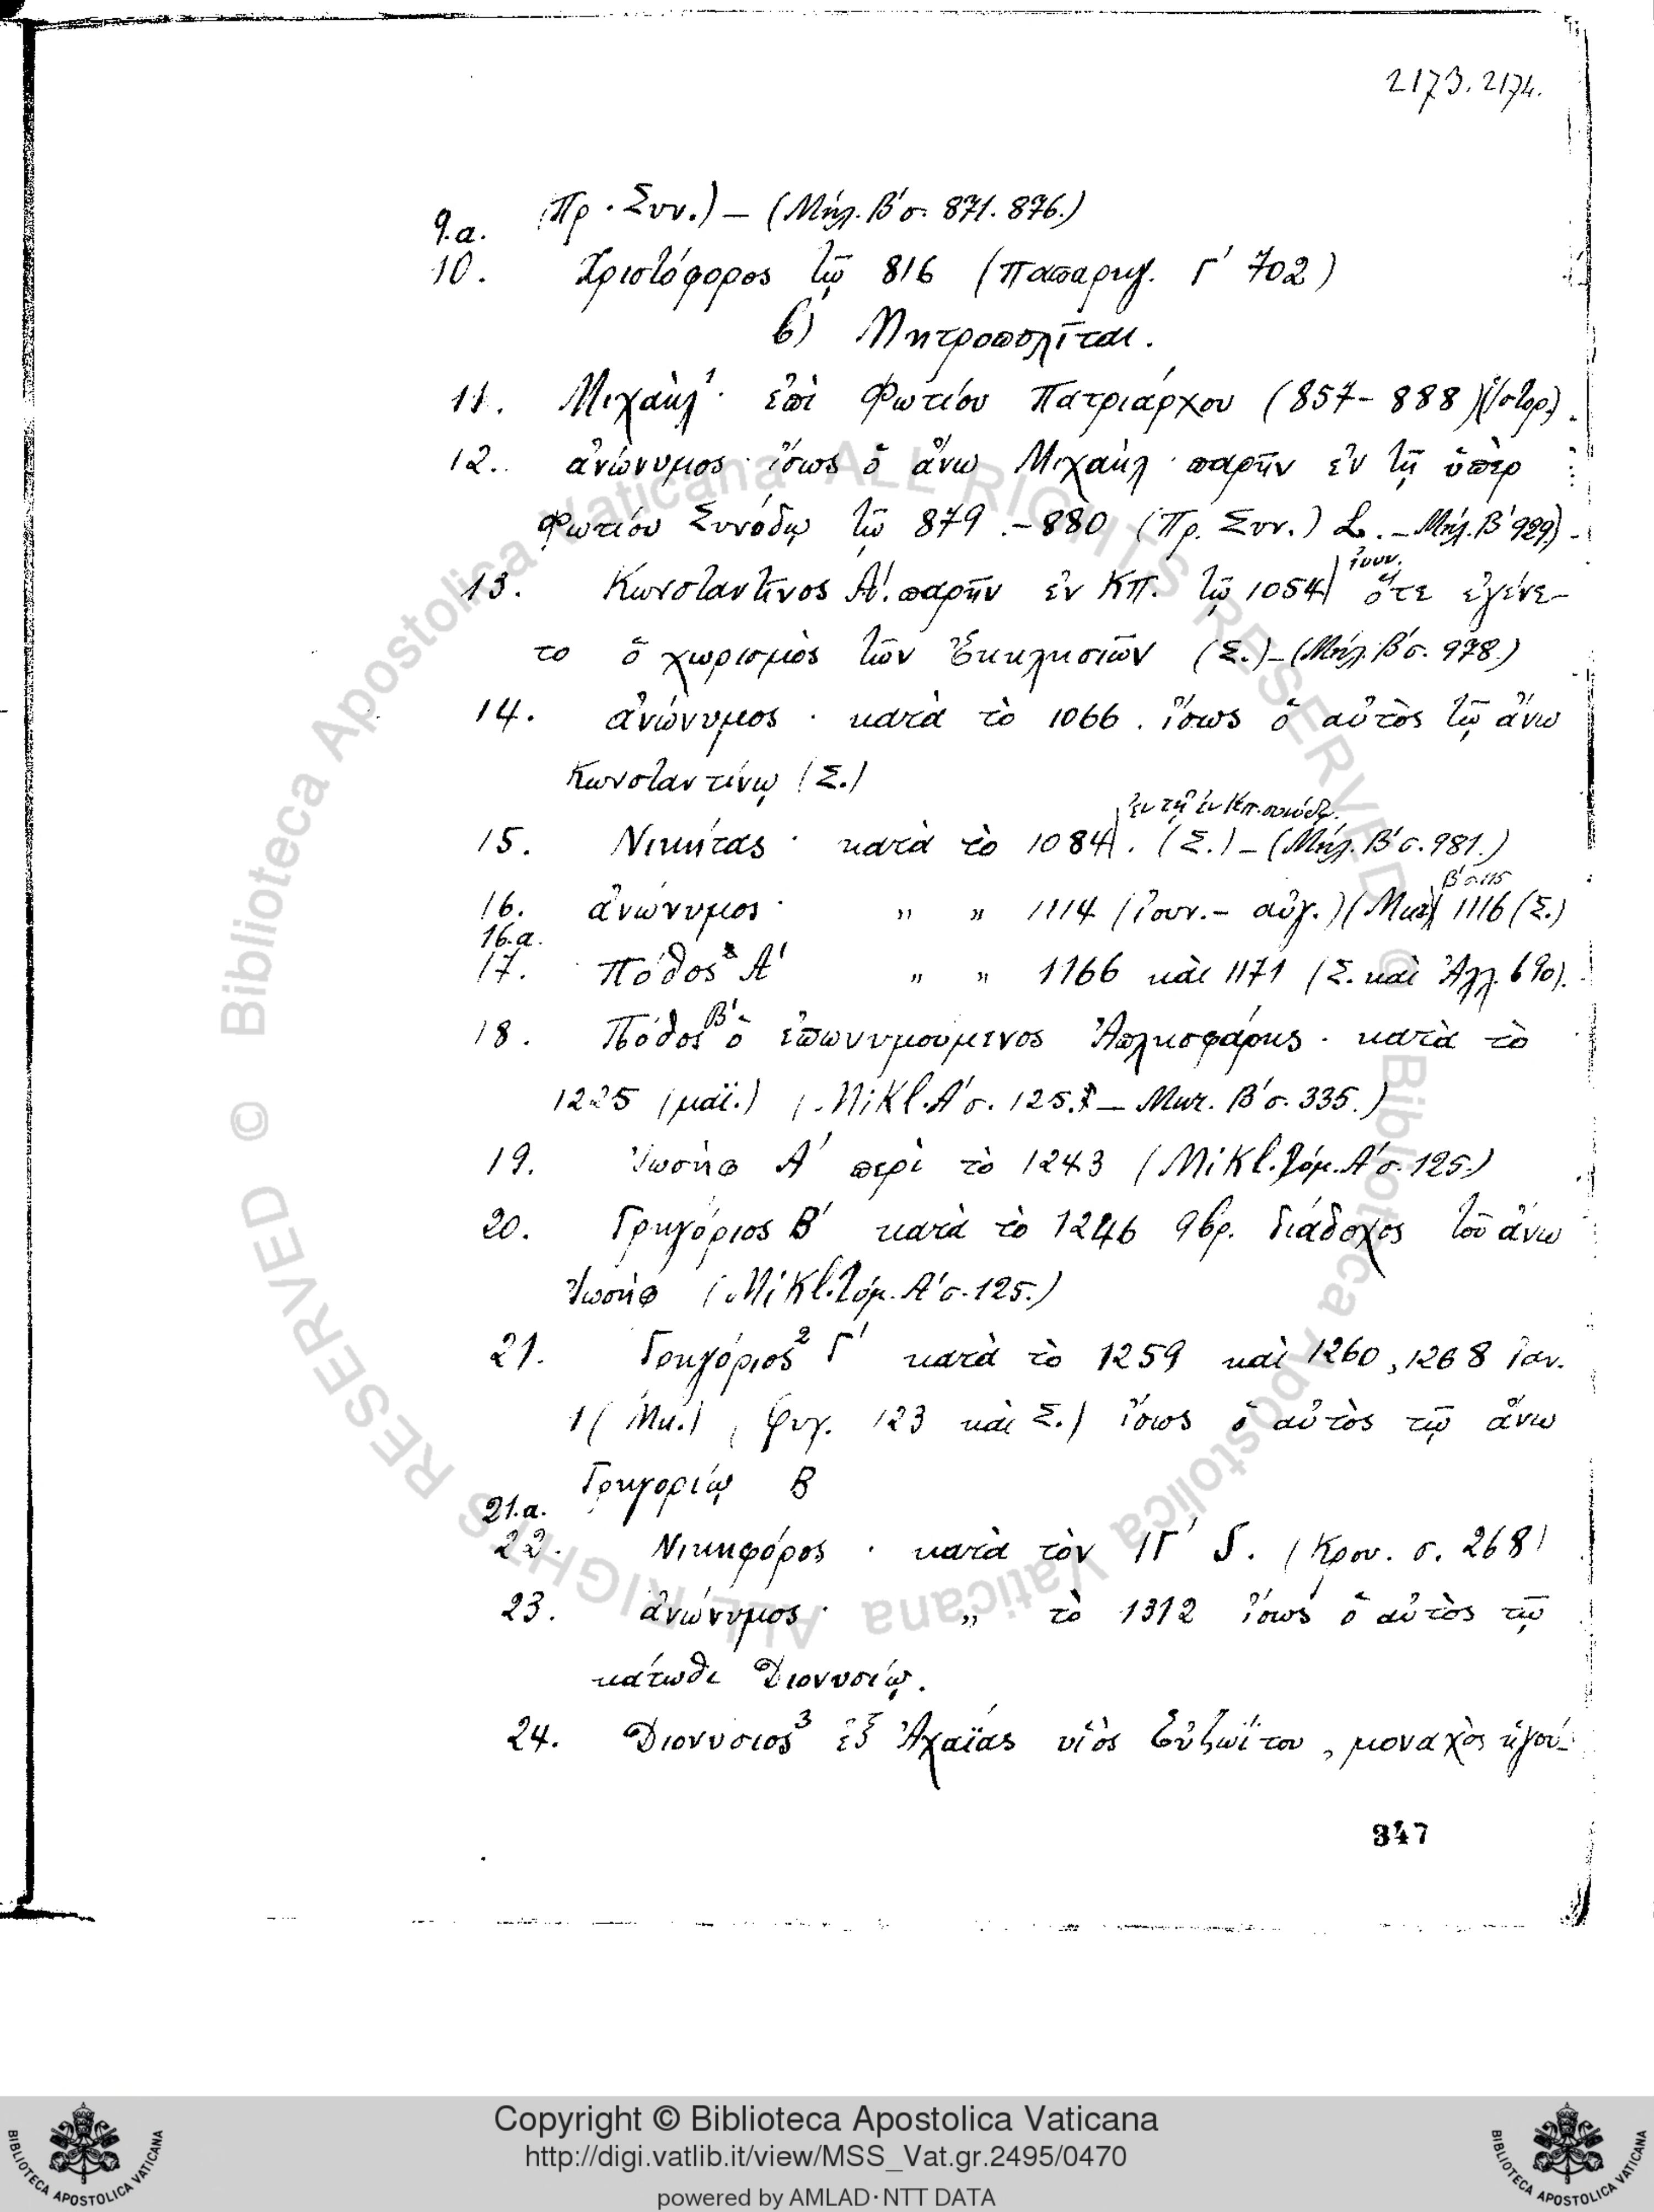 2173. 2174.
9.α. (Πρ. Συν.) – (Μήλ. Β' σ. 871. 876.)
10. Χριστόφορος τῷ 816 (Παπαρηγ. Γ' 702)
β) Μητροπολῖται.
11. Μιχαὴλ¹· ἐπὶ Φωτίου Πατριάρχου (857-888) (ἱστορ.)
12. ἀνώνυμος· ἴσως ὁ ἄνω Μιχαὴλ· παρῆν ἐν τῇ ὑπὲρ
Φωτίου Συνόδῳ τῷ 879.-880 (Πρ. Συν.) L. – Μήλ. Β' 929)
ἰουν.
13. Κωνσταντῖνος Α'. παρῆν ἐν ΚΠ. τῷ 1054 ὅτε ἐγένε-
το ὁ χωρισμὸς τῶν Ἐκκλησιῶν (Σ.) – (Μήλ. Β' σ. 978.)
14. ἀνώνυμος· κατὰ τὸ 1066. ἴσως ὁ αὐτὸς τῷ ἄνω
Κωνσταντίνῳ (Σ.)
ἐν τῇ ἐν Κπ. συνόδῳ.
15. Νικήτας· κατὰ τὸ 1084. (Σ.) – (Μήλ. Β' σ. 981.)
β' σ. 115
16. ἀνώνυμος· " " 1114 (ἰουν.- αὐγ.) 1116 (Σ.)
16.α.
17. Πόθος Α' " " 1166 καὶ 1171 (Σ. καὶ Ἀλλ. 690).
18. Πόθος Β' ὁ ἐπωνυμούμενος Ἀπλησφάρης. κατὰ τὸ
1225 (μαΐ.) (Mikl. Α' σ. 125. – Β' σ. 335.)
19. Ἰωσὴφ Α' περὶ τὸ 1243 (Mikl. Τόμ. Α' σ. 125.)
20. Γρηγόριος Β' κατὰ τὸ 1246 9βρ. διάδοχος τοῦ ἄνω
Ἰωσὴφ (Mikl. Τόμ. Α' σ. 125.)
21. Γρηγόριος² Γ' κατὰ τὸ 1259 καὶ 1260, 1268 ἰαν.
1 (Μικ.) 123 καὶ Σ.) ἴσως ὁ αὐτὸς τῷ ἄνω
Γρηγορίῳ Β
21.α.
22. Νικηφόρος· κατὰ τὸν ΙΓ' (Κρου. σ. 268)
23. ἀνώνυμος· " τὸ 1312 ἴσως ὁ αὐτὸς τῷ
κάτωθι Διονυσίῳ.
24. Διονύσιος³ ἐξ Ἀχαΐας υἱὸς Εὐζωΐτου, μοναχὸς ἡγού-
347
© Biblioteca Apostolica Vaticana ALL RIGHTS RESERVED © Biblioteca Apostolica Vaticana ALL RIGHTS RESERVED
Copyright © Biblioteca Apostolica Vaticana
http://digi.vatlib.it/view/MSS_Vat.gr.2495/0470
powered by AMLAD·NTT DATA
BIBLIOTECA APOSTOLICA VATICANA
BIBLIOTECA APOSTOLICA VATICANA